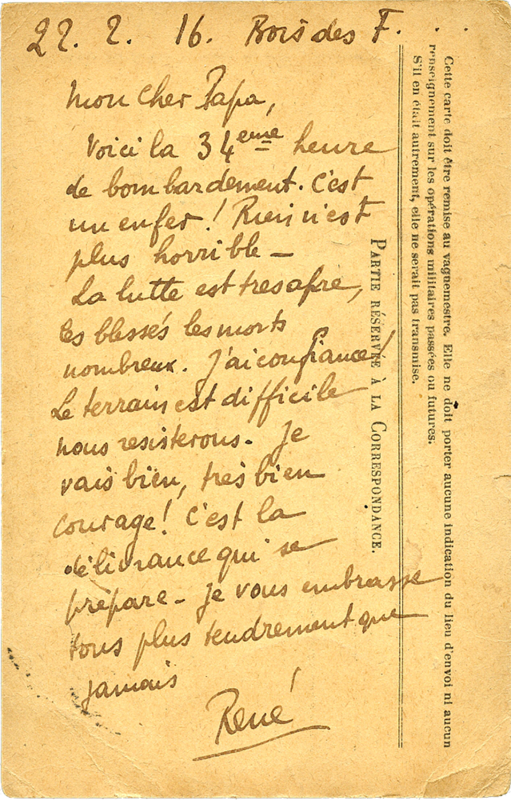 22. 2. 16. Bois des F. . .
Mon cher Papa,
Voici la 34eme heure
de bombardement. C'est
un enfer! Rien n'est
plus horrible –
La lutte est tres apre,
les blessés les morts
nombreux. J'ai confiance!
Le terrain est difficile
nous resisterons. Je
vais bien, tres bien
courage! C'est la
délivrance qui se
prépare – Je vous embrasse
tous plus tendrement que
jamais
René
PARTIE RÉSERVÉE À LA CORRESPONDANCE.
Cette carte doit être remise au vaguemestre. Elle ne doit porter aucune indication du lieu d'envoi ni aucun
renseignement sur les opérations militaires passées ou futures.
S'il en était autrement, elle ne serait pas transmise.